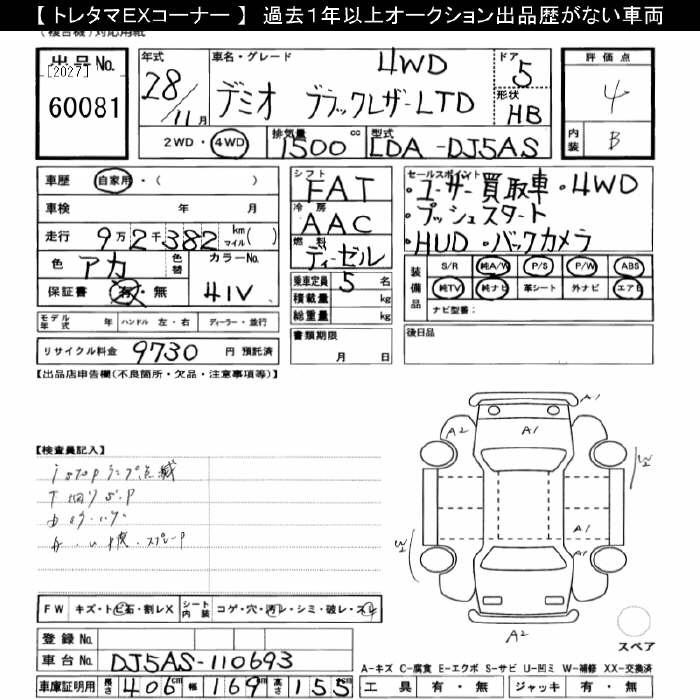 【 トレタマEXコーナー 】 過去1年以上オークション出品歴がない車両
(複合機)対応用紙
出品No.
[2027]
60081
年式 28/11月
車名・グレード 4WD
デミオ ブラックレザーLTD
ドア 5
形状 HB
評価点 4
内装 B
2WD・4WD
排気量 1500 cc
型式 LDA-DJ5AS
車歴 自家用・( )
車検 年 月
走行 9万2千382 km マイル( )
色 アカ 色替 カラーNo. 41V
保証書 有・無
モデル年式 年 ハンドル 左・右 ディーラー・並行
リサイクル料金 9730 円 預託済
シフト FAT
冷房 AAC
燃料 ディーゼル
乗車定員 5 名
積載量 kg
総重量 kg
書類期限
月 日
セールスポイント
・ユーザー買取車・4WD
・プッシュスタート
・HUD ・バックカメラ
装備品 S/R 純A/W P/S P/W ABS
純TV 純ナビ 革シート 外ナビ エアB
ナビ型番:
後日品
【出品店申告欄(不良箇所・欠品・注意事項等)】
【検査員記入】
istopランプ点滅
A1
A2
A1
W2
A1
A1
W2
A2
スペア
FW キズ・ト ヒ石・割レX シート内装 コゲ・穴・汚レ・シミ・破レ・スレ
登録No.
車台No. DJ5AS-110693
車庫証明用 長さ 406cm 幅 169cm 高さ 155cm
A-キズ C-腐食 E-エクボ S-サビ U-凹ミ W-補修 XX-交換済
工具 有・無 ジャッキ 有・無